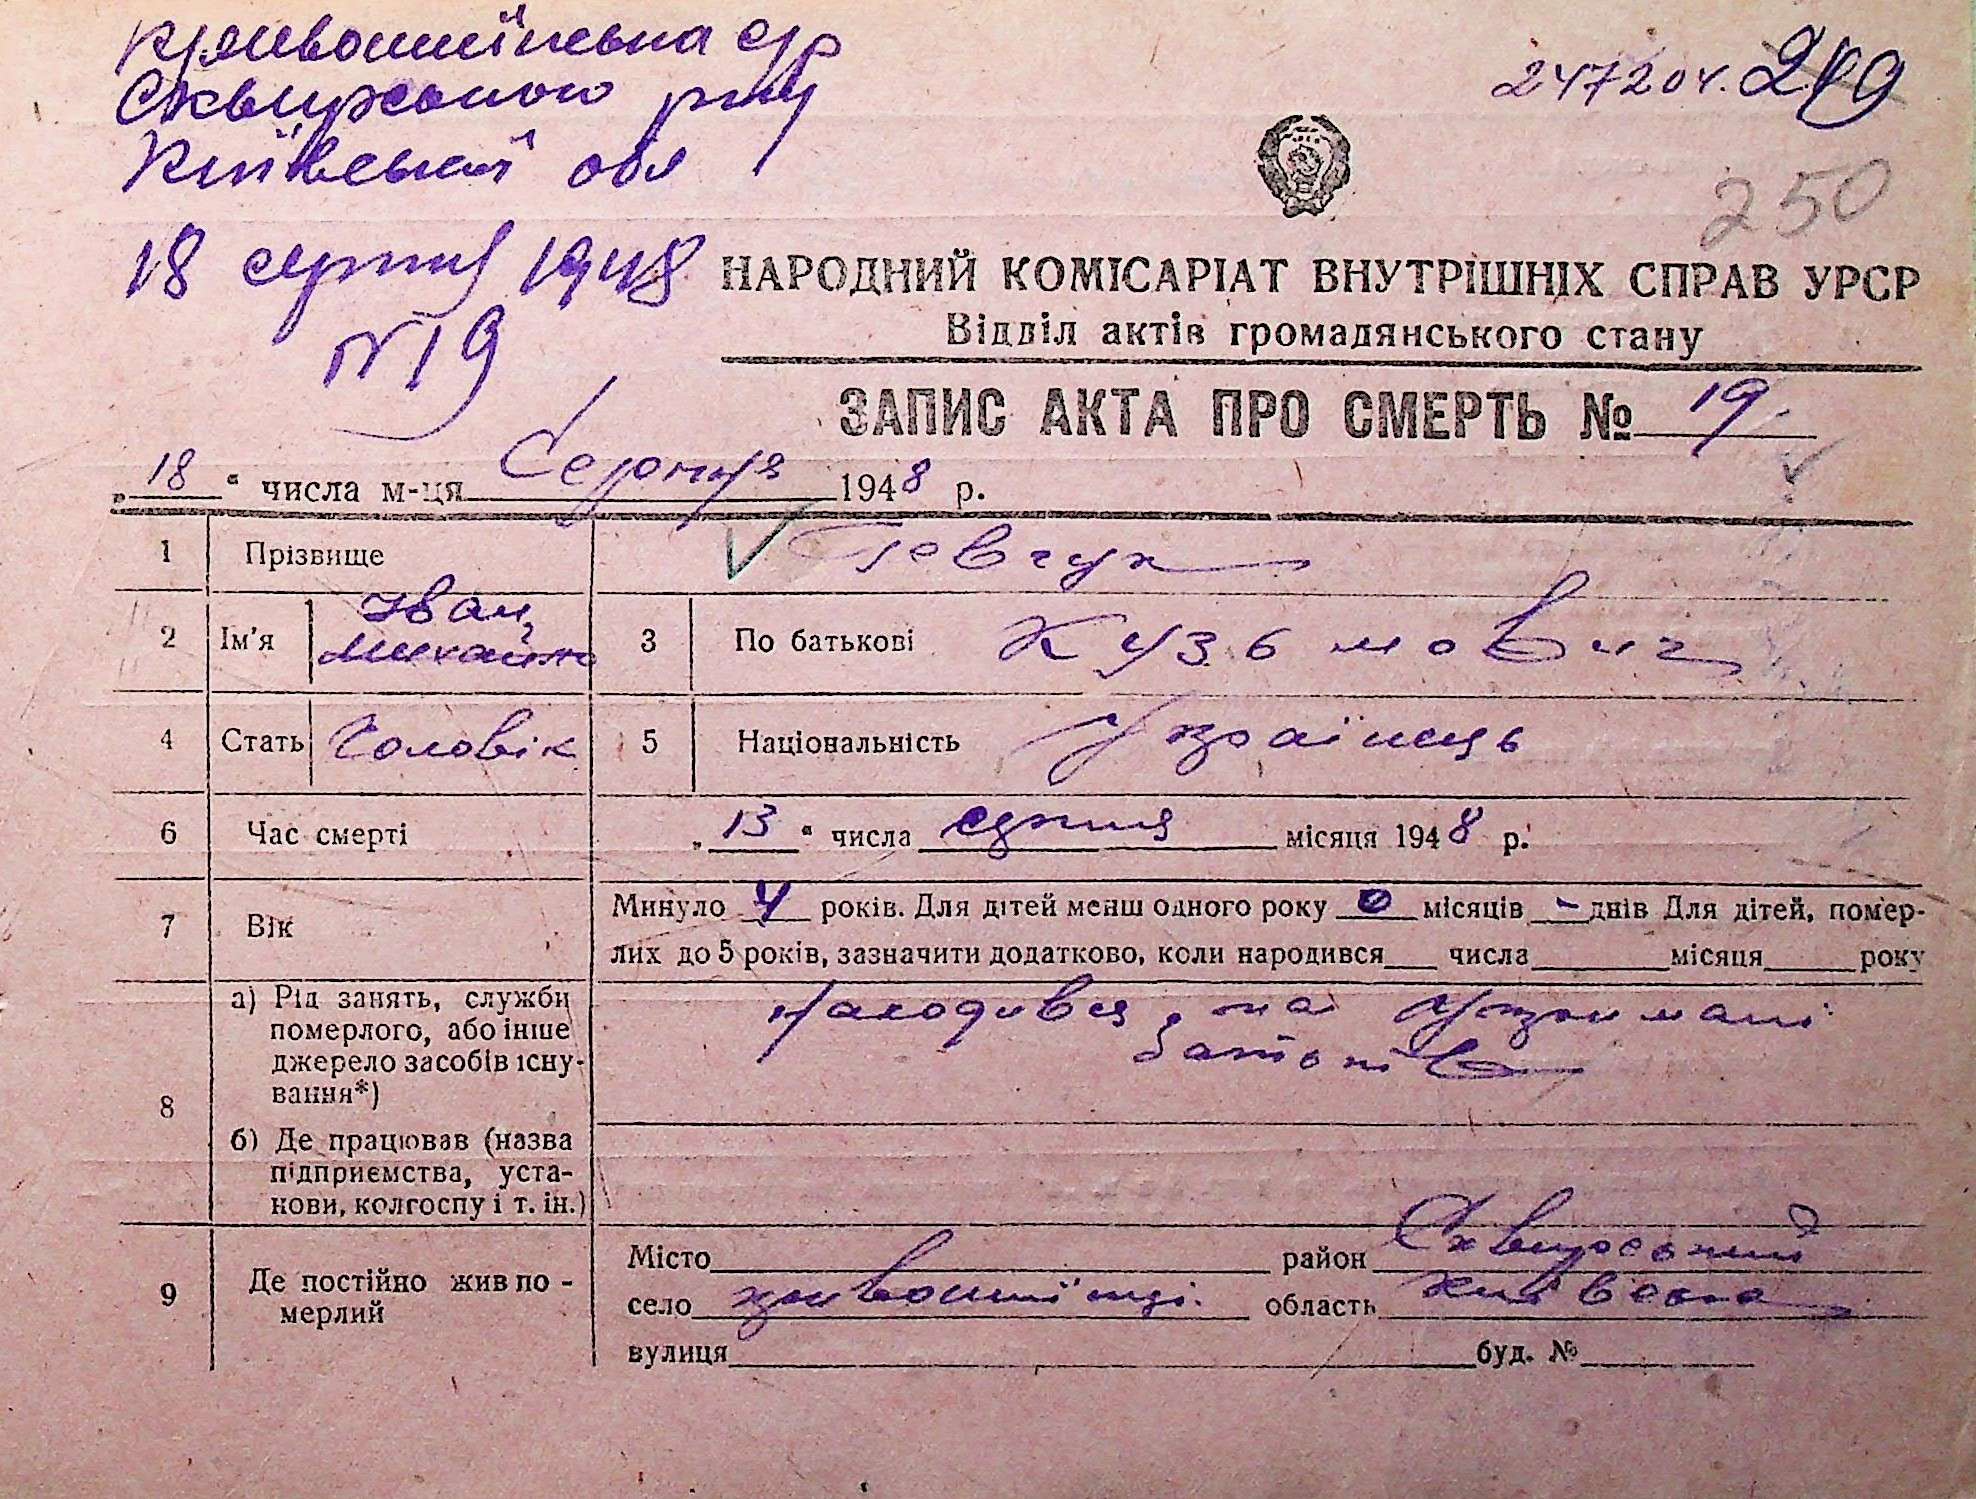 Кривошиїнська с/р
Сквирського р-ну
Київської обл
247204. 249
250
18 серпня 1948
№19
НАРОДНИЙ КОМІСАРІАТ ВНУТРІШНІХ СПРАВ УРСР
Відділ актів громадянського стану
ЗАПИС АКТА ПРО СМЕРТЬ № 19.
„18“ числа м-ця Серпня 1948 р.
1 Прізвище Гевчук
2 Ім'я Іван, Михайло 3 По батькові Кузьмович
4 Стать Чоловік 5 Національність Українець
6 Час смерті „13“ числа серпня місяця 1948 р.
7 Вік Минуло 4 років. Для дітей менш одного року 0 місяців - днів Для дітей, помер-
лих до 5 років, зазначити додатково, коли народився числа місяця року
8 а) Рід занять, служби
померлого, або інше
джерело засобів існу-
вання*)
находився на утримані
батьків
б) Де працював (назва
підприємства, уста-
нови, колгоспу і т. ін.)
9 Де постійно жив по-
мерлий
Місто район Сквирський
село Кривошиїнці. область Київська
вулиця буд. №